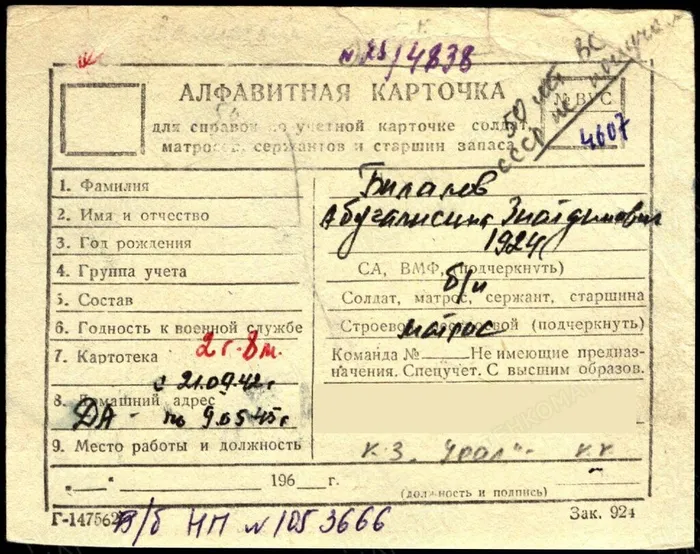 № 25/4838
50 лет ВС
СССР не получал
АЛФАВИТНАЯ КАРТОЧКА
для справок по учетной карточке солдат,
матросов, сержантов и старшин запаса
№ ВУС
4607
1. Фамилия Билалов
2. Имя и отчество
3. Год рождения 1924
4. Группа учета СА, ВМФ, (подчеркнуть)
б/п
5. Состав Солдат, матрос, сержант, старшина
6. Годность к военной службе Строевой, нестроевой (подчеркнуть)
матрос
7. Картотека 2 г. 8 м. Команда № Не имеющие предназ-
начения. Спецучет. С высшим образов.
с 21.09.42 г
8. Домашний адрес
ДА - по 9.05.45 г
9. Место работы и должность к-з "Урал"
"__" 196__г.
(должность и подпись)
Г-147562 Зак. 924
В/б НП № 1053666